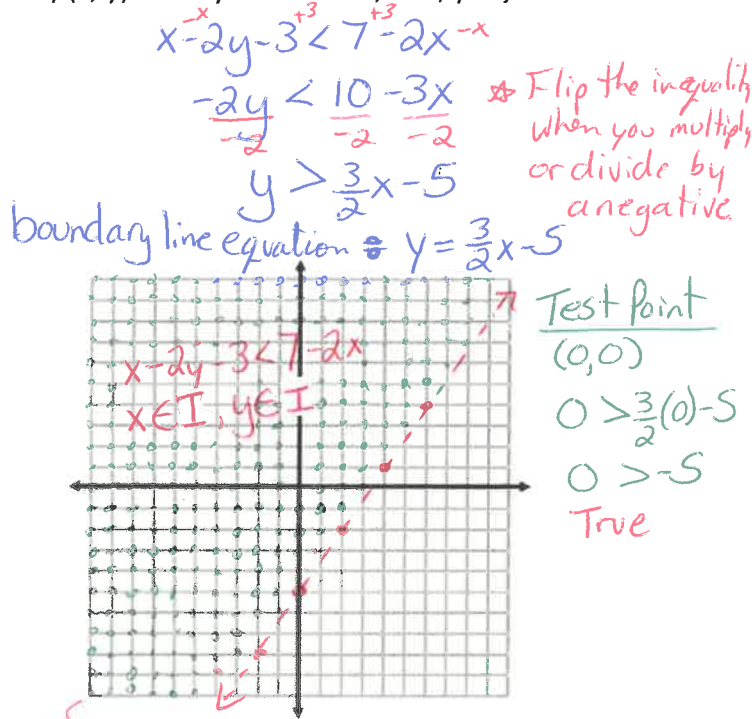 -x +3 +3
x-2y-3<7-2x-x
-2y < 10-3x
-2 -2 -2
☆ Flip the inequality
when you multiply
or divide by
a negative
y > 3/2x-5
boundary line equation : y = 3/2x-5
x-2y-3<7-2x
x∈I, y∈I
Test Point
(0,0)
0 > 3/2(0)-5
0 > -5
True